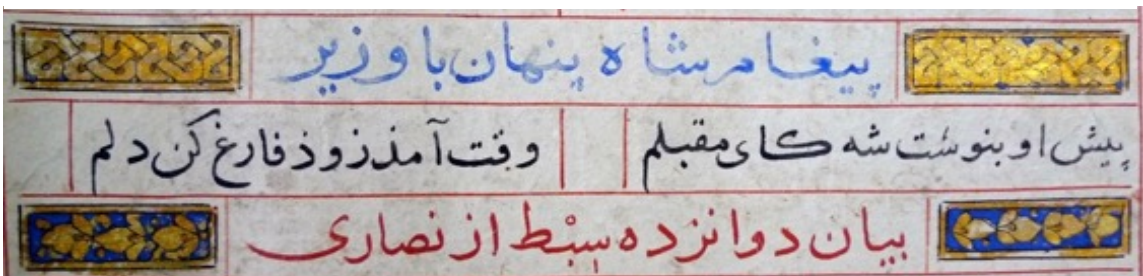 پیغام شاه پنهان با وزیر
پیش او بنوشت شه کای مقبلم وقت آمذ زوذ فارغ کن دلم
بیان دوانزده سبْط از نصاری